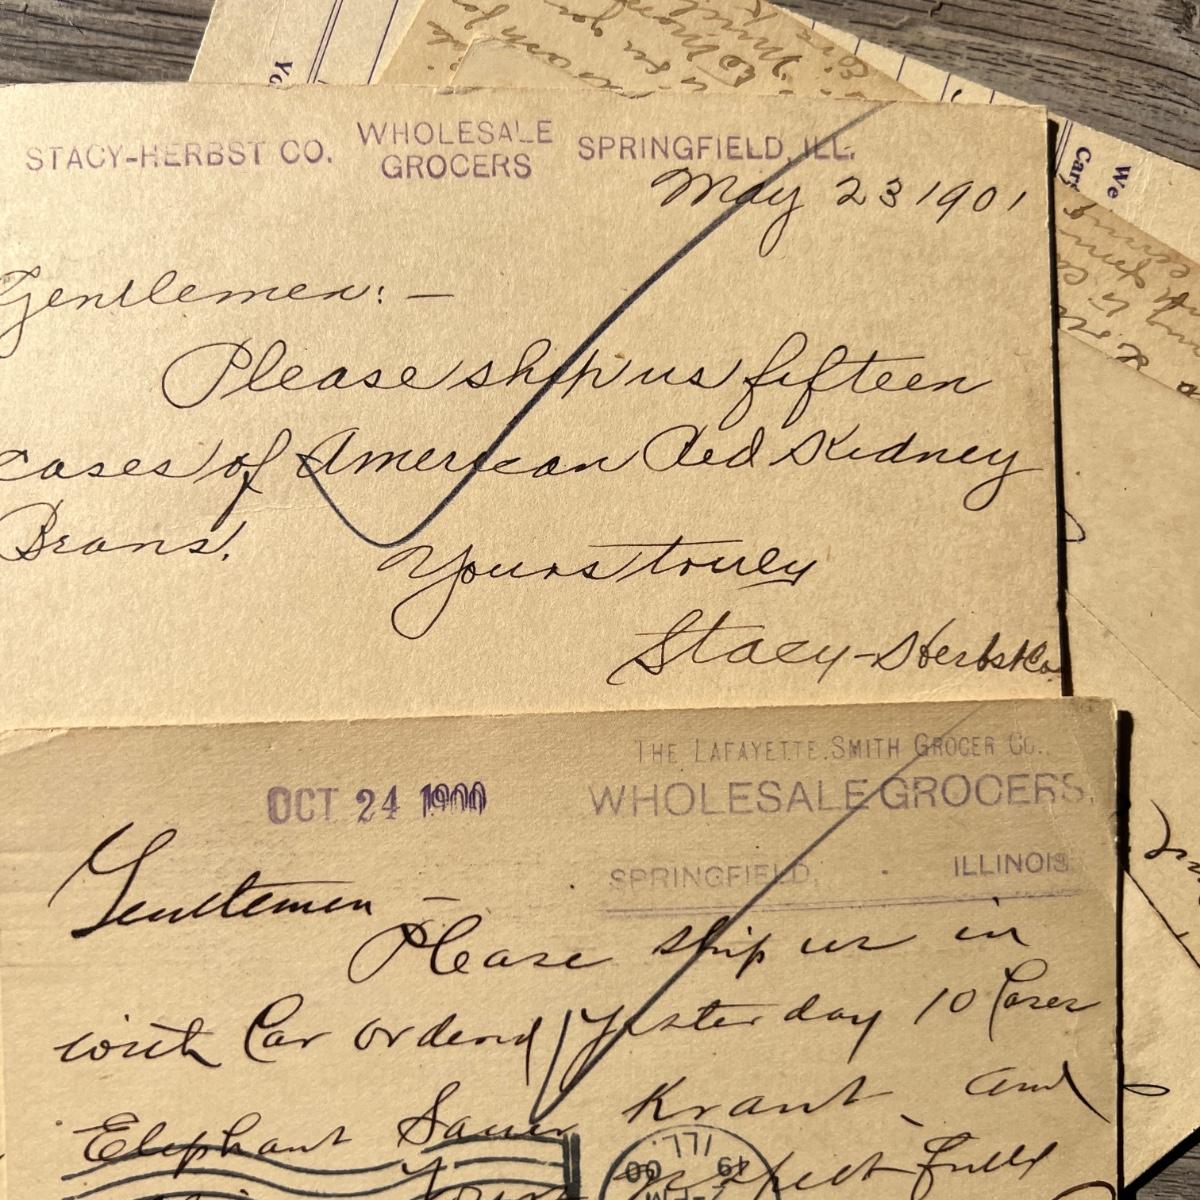 STACY-HERBST CO. WHOLESALE GROCERS SPRINGFIELD, ILL.
May 23 1901
Gentlemen: —
Please ship us fifteen
cases of American Red Kidney
Beans.
Yours truly
Stacy-Herbst Co.
THE LAFAYETTE SMITH GROCER CO.
OCT 24 1900
WHOLESALE GROCERS,
SPRINGFIELD, ILLINOIS
Gentlemen —
Please ship us in
with Car orderd yesterday 10 Cases
Elephant Sauer Kraut and
ILL.
We
Car